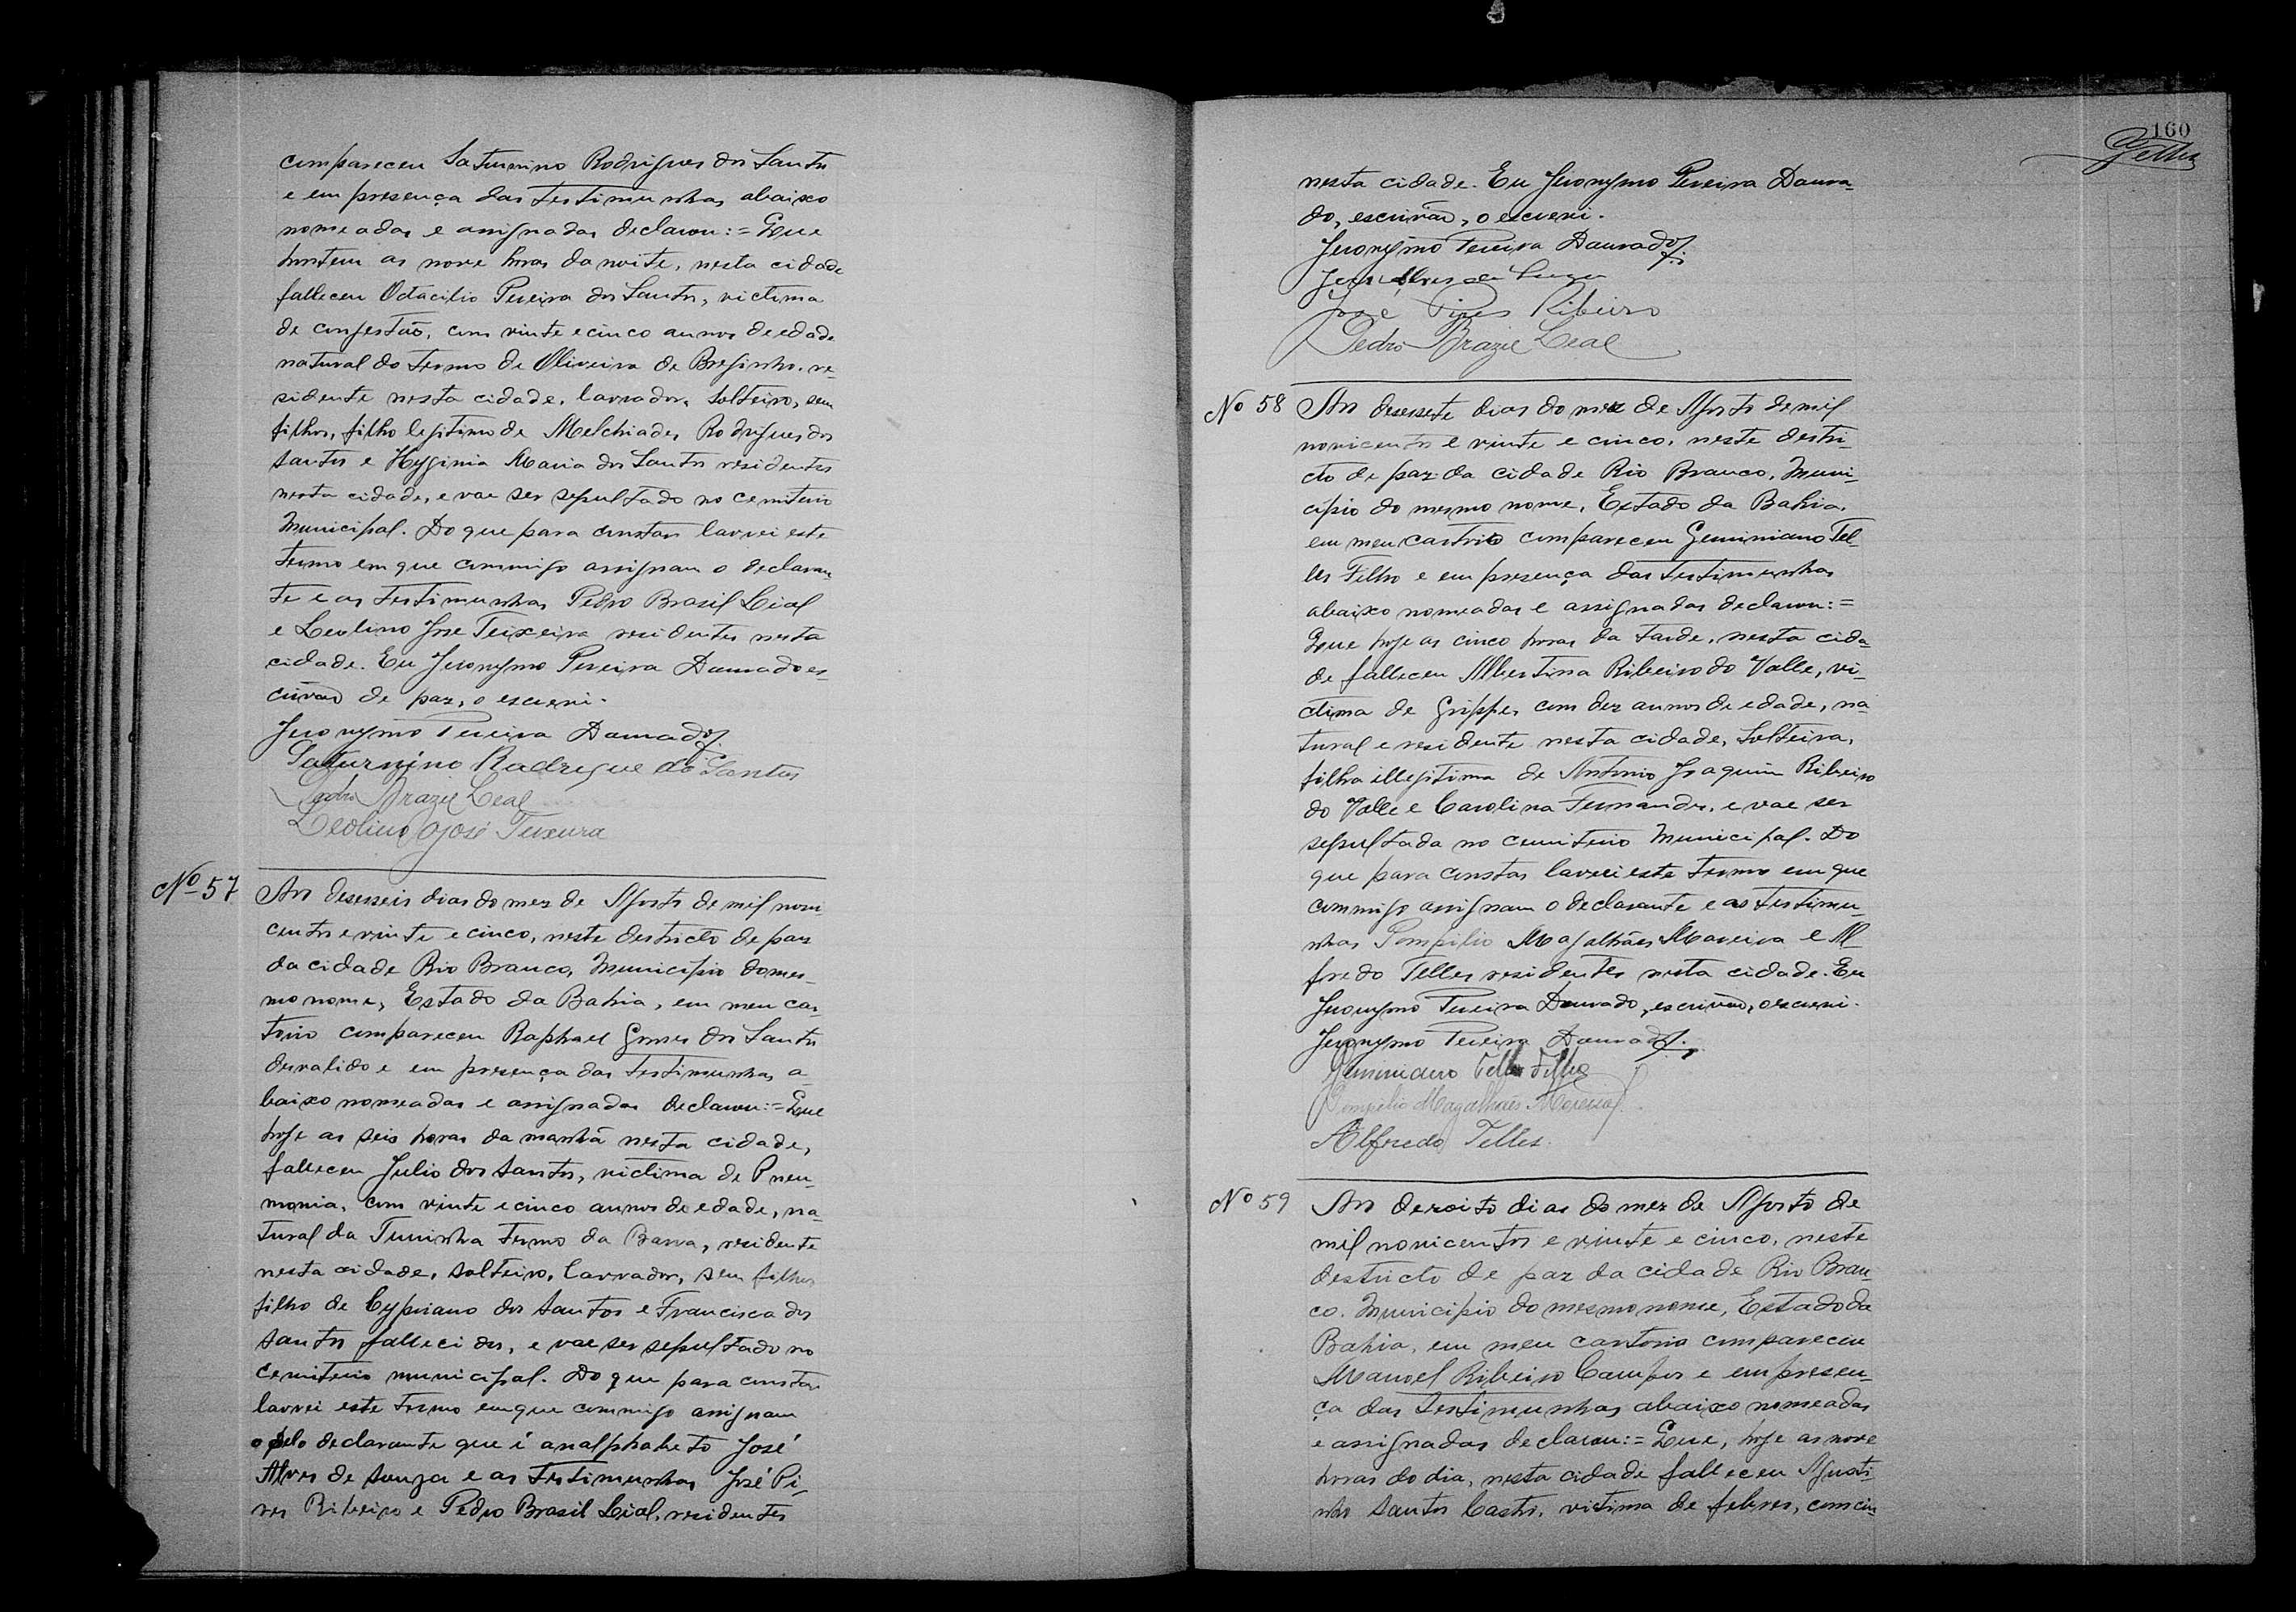 compareceu Saturnino Rodrigues dos Santos
e em presença das testimunhas abaixo
nomeadas e assignadas declarou:= Que
hontem as nove horas da noite, nesta cidade
falleceu Octacilio Pereira dos Santos, victima
de congestão, com vinte e cinco annos de edade
natural do termo de Oliveira de Brejinho, re-
sidente nesta cidade, lavrador, solteiro, sem
filhos, filho legitimo de Melchiades Rodrigues dos
Santos e Hyginia Maria dos Santos residentes
nesta cidade, e vae ser sepultado no cemiterio
Municipal. Do que para constar lavrei este
termo em que commigo assignam o declaran
te e as testimunhas Pedro Brasil Lial
e Leolino José Teixeira residentes nesta
cidade. Eu Jeronymo Pereira Dourado es-
crivão de paz, o escrevi.
Jeronymo Pereira Dourado
Saturnino Radrigue do Santos
Pedro Brazil Leal
Leolino José Teixeira
Nº 57
Aos desesseis dias do mez de Agosto de mil nove
centos e vinte e cinco, neste destricto de paz
da cidade Rio Branco, Municipio do mes-
mo nome, Estado da Bahia, em meu car-
torio compareceu Raphael Gomes dos Santos
desvalido e em presença das testimunhas a-
baixo nomeadas e assignadas declarou:= Que
hoje as seis horas da manhã nesta cidade,
falleceu Julio dos Santos, victima de Pneu-
monia, com vinte e cinco annos de edade, na-
tural da termo da Barra, residente
nesta cidade, solteiro, lavrador, sem filhos
filho de Cypriano dos Santos e Francisca dos
Santos fallecidos, e vae ser sepultado no
Cemiterio municipal. Do que para constar
lavrei este termo em que commigo assignam
o pelo declarante que é analphabeto José
Alves de Souza e as testimunhas José Pi-
res Ribeiro e Pedro Brasil Lial, residentes
160
Telles
nesta cidade. Eu Jeronymo Pereira Doura-
do, escrivão, o escrevi.
Jeronymo Pereira Dourado
José Alves de Souza
José Pires Ribeiro
Pedro Brazil Leal
No 58
Aos desessete dias do mez de Agosto de mil
novicentos e vinte e cinco, neste destri-
cto de paz da cidade Rio Branco, Muni-
cipio do mesmo nome, Estado da Bahia,
em meu cartorio compareceu Geminiano Tel-
les Filho e em presença das testimunhas
abaixo nomeadas e assignadas declarou:=
Que hoje as cinco horas da tarde, nesta cida-
de falleceu Albertina Ribeiro do Valle, vi-
ctima de Grippe, com dez annos de edade, na-
tural e residente nesta cidade, solteira,
filha illegitima de Antonio Joaquim Ribeiro
do Valle e Carolina Fernandes, e vae ser
sepultada no cemiterio Municipal. Do
que para constar lavrei este termo em que
commigo assignam o declarante e as testimu-
nhas Pompilio Magalhães Moreira e Al
fredo Telles residentes nesta cidade. Eu
Jeronymo Pereira Dourado, escrivão, o escrevi.
Jeronymo Pereira Dourado
Geminiano Telles Filho
Pompilio Magalhães Moreira
Alfredo Telles
No 59
Aos dezoito dias do mez de Agosto de
mil novicentos e vinte e cinco, neste
destricto de paz da cidade Rio Bran-
co. Municipio do mesmo nome, Estado da
Bahia, em meu cartorio compareceu
Manoel Ribeiro Campos e em presen-
ça das testimunhas abaixo nomeadas
e assignadas declarou:= Que, hoje as nove
horas do dia, nesta cidade falleceu Agosti-
nho Santos Castro, victima de febres, com cin-